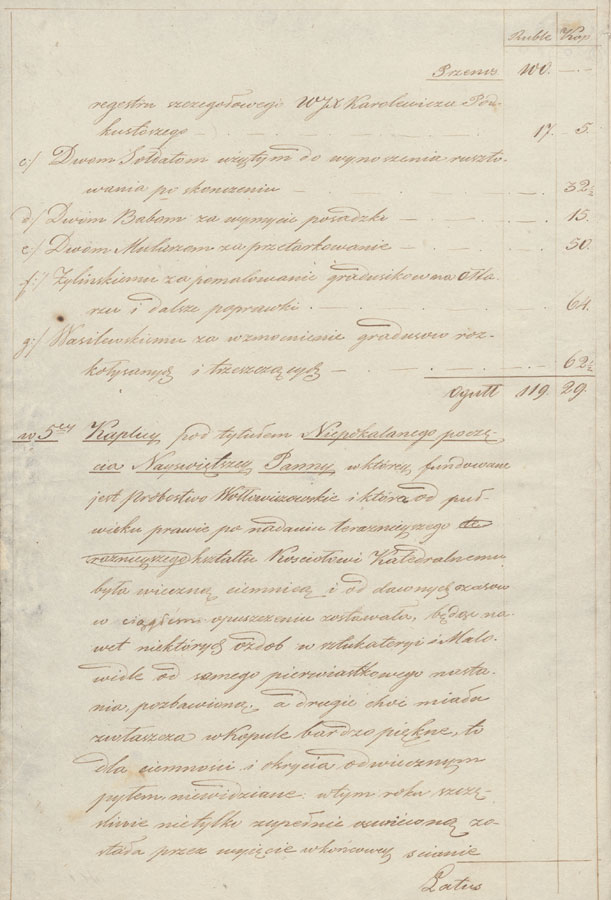 Ruble Kop
Przenos 100. — —
regestru szczegołowego WJX Karolewicza Pod-
kustoszego — 17. — 5.
c/ Dwom Sołdatom użytym do wynoszenia ruszto-
wania po skonczeniu — 32½
d/ Dwóm Babom za wymycie posadzki — 15.
e/ Dwóm Mularzom za przetarkowanie — 50.
f/ Zylinskiemu za pomalowanie gradusikow na Ołta-
rzu i dalsze poprawki — 64.
g/ Wasilewskiemu za wzmocnienie gradusow roz-
kołysanych i trzeszczących — 62½
Ogułł 119. 29.
w 5ey Kaplicy pod tytułem Niepokalanego poczę-
cia Nayświętszey Panny, w którey fundowane
jest Probostwo Wołłowiczowskie i która od puł-
wieku prawie po nadaniu teraznieyszego te
raznieyszego kształtu Kosciołowi Katedralnemu
była wieczną ciemnicą i od dawnych czasow
w ciągłém opuszczeniu zostawała, będąc na-
wet niektórych ozdob w sztukateryi i Malo-
widle od samego pierwiastkowego nasta-
nia, pozbawioną, a drugie choć miała
zwłaszcza w Kopule bardzo piękne, to
dla ciemnosci i okrycia odwiecznym
pyłem, niewidziane: w tym roku szczę-
sliwie nietylko zupełnie oswieconą zo-
stała przez wyjęcie w koncowey scianie
Latus